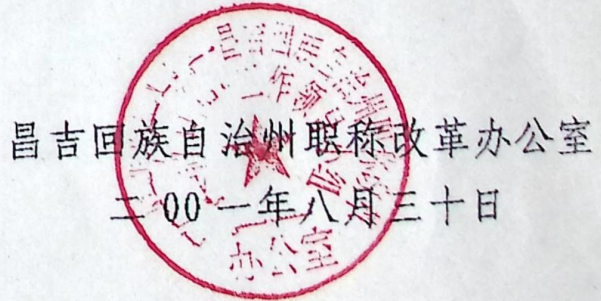 昌吉回族自治州职称改革办公室
二00一年八月三十日
办公室